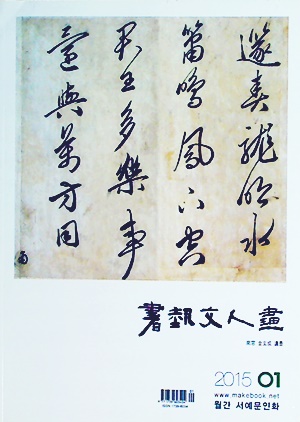 篴奏龍吟水
簫鳴鳳下空
君王多樂事
還與萬方同
書藝文人畵
2015 01
www.makebook.net
월간 서예문인화